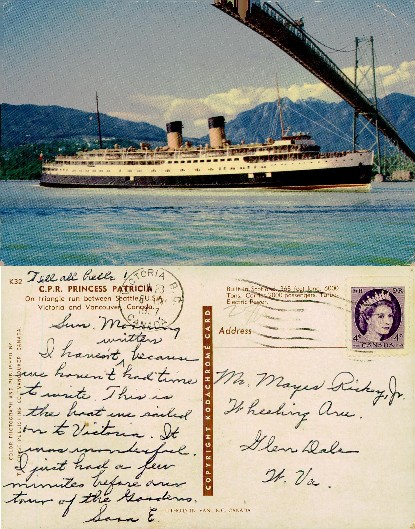 Tell all hello!
K32
C.P.R. PRINCESS PATRICIA
On triangle run between Seattle, U.S.A.
Victoria and Vancouver, Canada.
VICTORIA B.C.
CANADA
Built in Scotland, 368 feet long, 6000
Tons, Carries 2000 passengers, Turbo
Electric Power.
4¢ 4¢
CANADA
Address
COPYRIGHT KODACHROME CARD
Sun. Morning
written
I haven't, because
we haven't had time
to write. This is
the boat we sailed
on to Victoria. It
was wonderful.
I just had a few
minutes before our
tour of the Gardens.
Sara E.
Mr. Mayes Rickey, Jr.
Wheeling Ave.
Glen Dale
W. Va.
CANADA